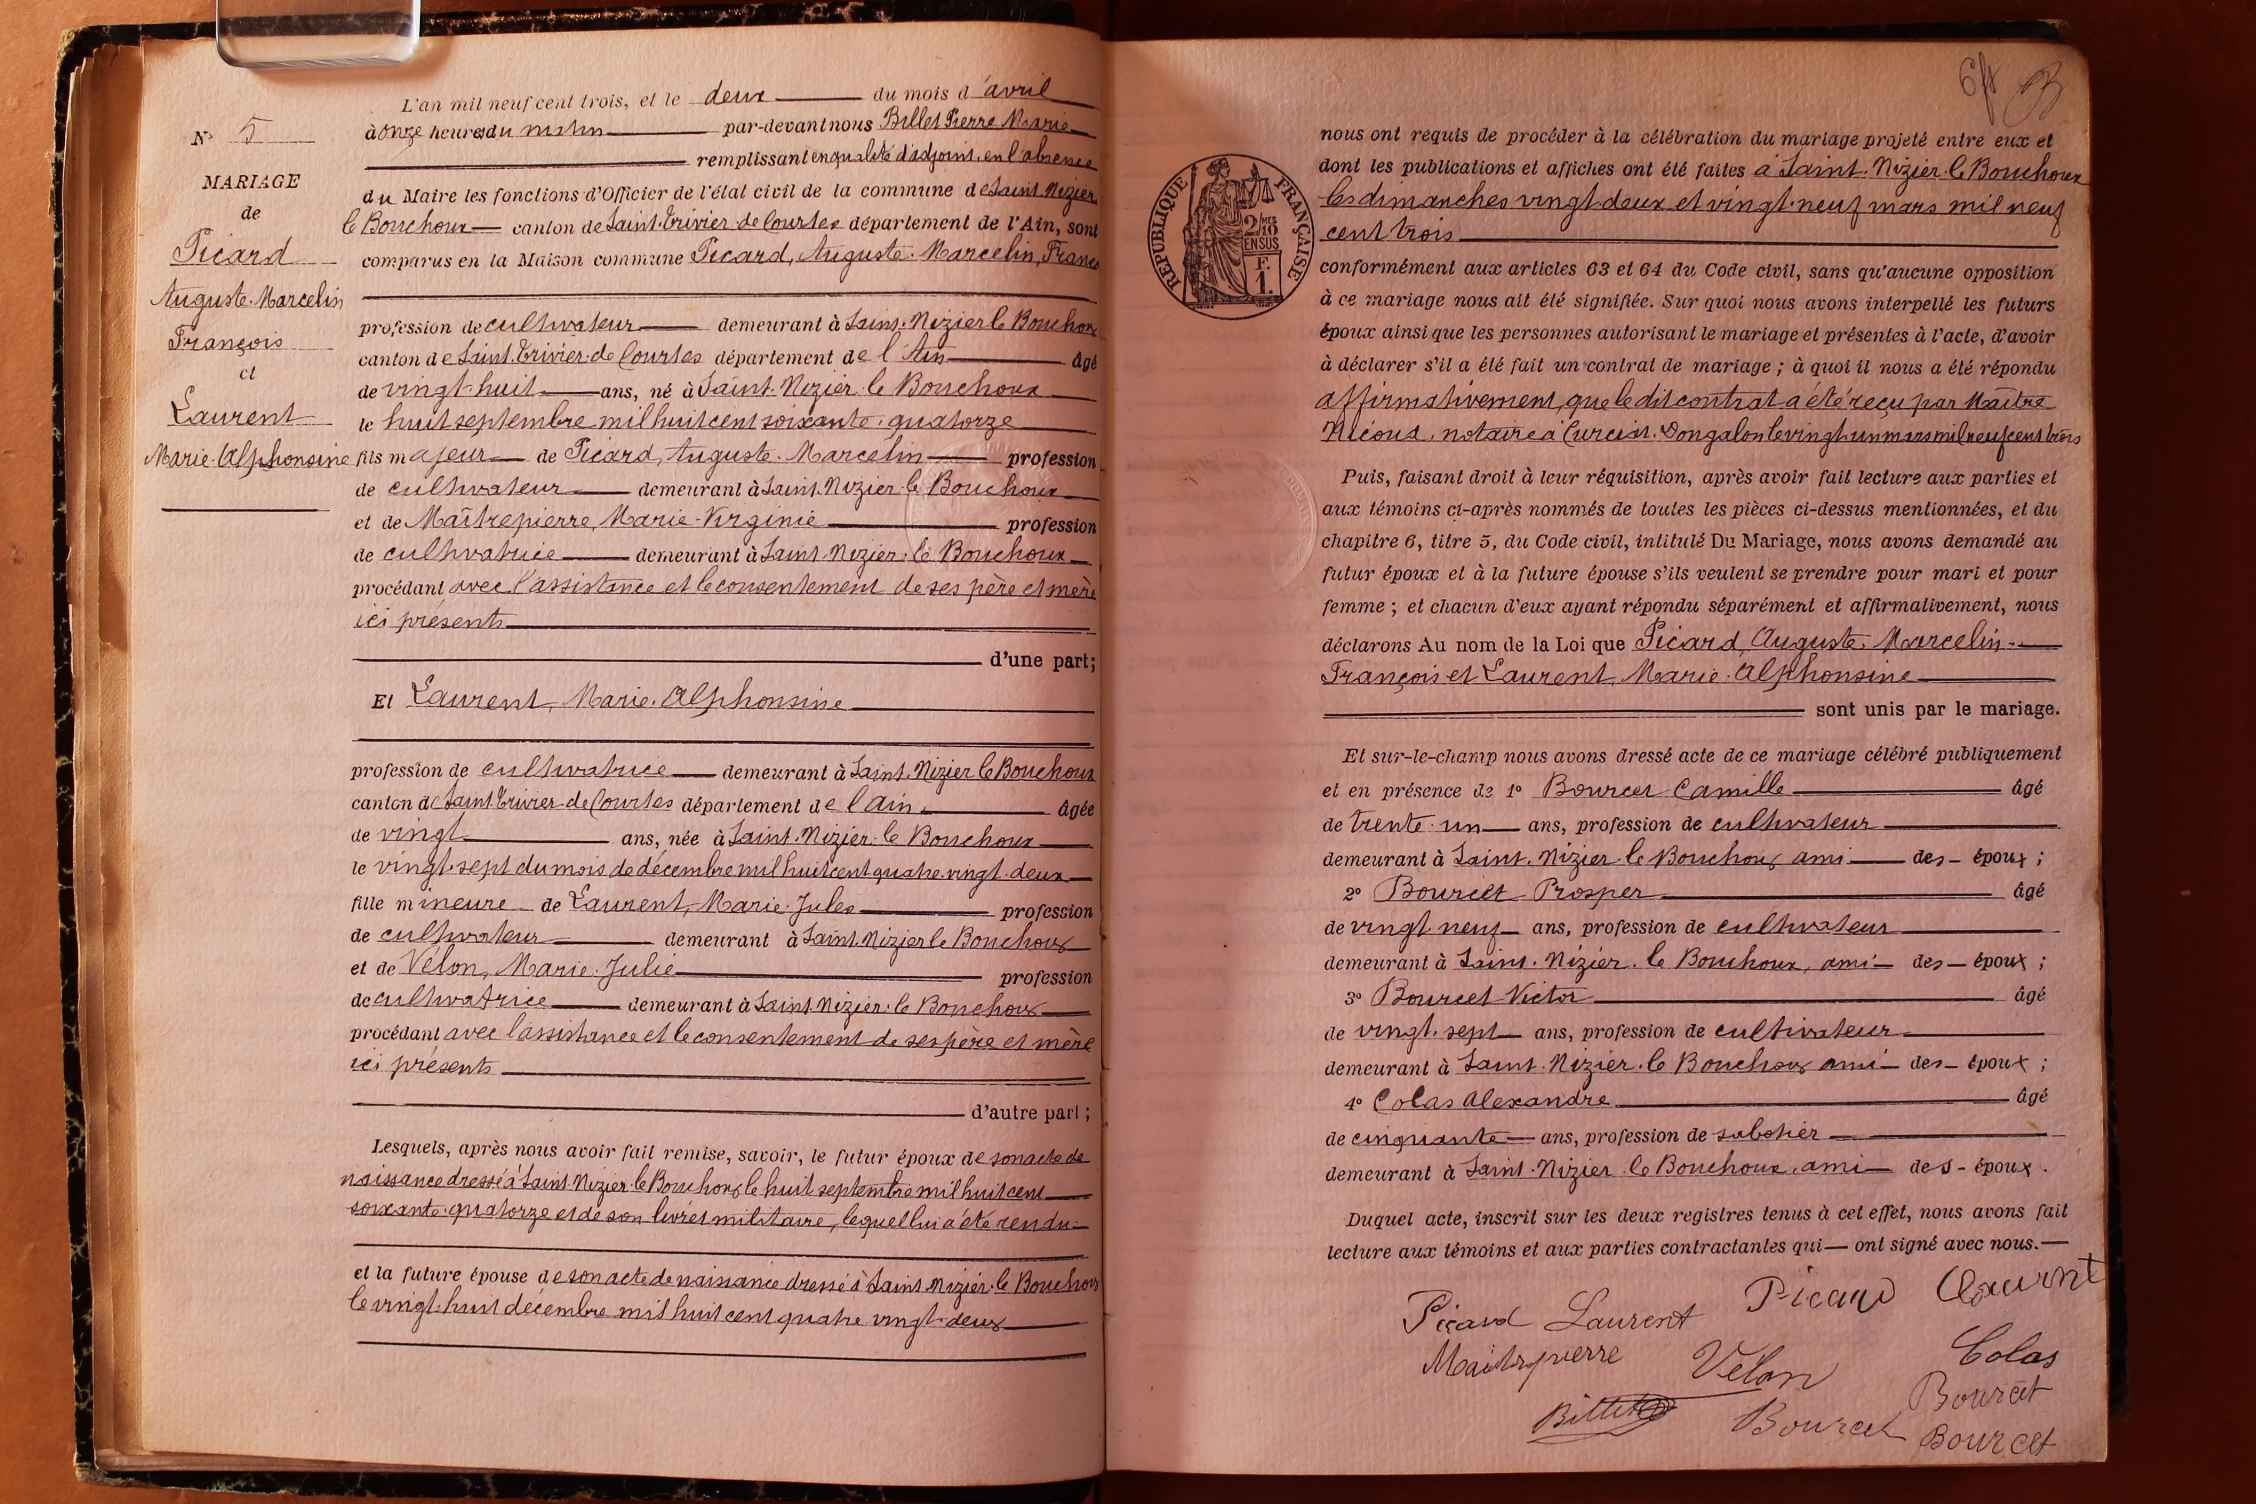 N° 5
MARIAGE
de
Picard
Auguste-Marcelin
François
et
Laurent
Marie-Alphonsine
L'an mil neuf cent trois, et le deux du mois d'avril
à onze heures du matin par-devant nous Billet Pierre Marie
remplissant en qualité d'adjoint, en l'absence
du Maire les fonctions d'Officier de l'état civil de la commune de Saint-Nizier
le Bouchoux canton de Saint-Trivier-de Courtes département de l'Ain, sont
comparus en la Maison commune Picard, Auguste-Marcelin, Franço
profession de cultivateur demeurant à Saint-Nizier le Bouchoux
canton de Saint-Trivier-de Courtes département de l'Ain âgé
de vingt-huit ans, né à Saint-Nizier-le Bouchoux
le huit septembre mil huit cent soixante-quatorze
fils majeur de Picard, Auguste-Marcelin profession
de cultivateur demeurant à Saint-Nizier-le Bouchoux
et de Maîtrepierre, Marie-Virginie profession
de cultivatrice demeurant à Saint-Nizier-le Bouchoux
procédant avec l'assistance et le consentement de ses père et mère
ici présents
d'une part;
Et Laurent, Marie-Alphonsine
profession de cultivatrice demeurant à Saint-Nizier le Bouchoux
canton de Saint Trivier-de Courtes département de l'Ain âgée
de vingt ans, née à Saint-Nizier-le Bouchoux
le vingt-sept du mois de décembre mil huit cent quatre-vingt-deux
fille mineure de Laurent, Marie-Jules profession
de cultivateur demeurant à Saint Nizier le Bouchoux
et de Vélon, Marie-Julie profession
de cultivatrice demeurant à Saint Nizier-le Bouchoux
procédant avec l'assistance et le consentement de ses père et mère
ici présents
d'autre part;
Lesquels, après nous avoir fait remise, savoir, le futur époux de son acte de
naissance dressé à Saint-Nizier-le Bouchoux le huit septembre mil huit cent
soixante-quatorze et de son livret militaire, lequel lui a été rendu
et la future épouse de son acte de naissance dressé à Saint-Nizier-le Bouchoux
le vingt-huit décembre mil huit cent quatre vingt-deux
nous ont requis de procéder à la célébration du mariage projeté entre eux et
dont les publications et affiches ont été faites à Saint-Nizier-le Bouchoux
les dimanches vingt-deux et vingt-neuf mars mil neuf
cent trois
RÉPUBLIQUE FRANÇAISE
2/10 EN SUS
F.
1.
conformément aux articles 63 et 64 du Code civil, sans qu'aucune opposition
à ce mariage nous ait été signifiée. Sur quoi nous avons interpellé les futurs
époux ainsi que les personnes autorisant le mariage et présentes à l'acte, d'avoir
à déclarer s'il a été fait un contrat de mariage; à quoi il nous a été répondu
affirmativement, que le dit contrat a été reçu par Maître
notaire à Curciat-Dongalon le vingt-un mars mil neuf cent trois
Puis, faisant droit à leur réquisition, après avoir fait lecture aux parties et
aux témoins ci-après nommés de toutes les pièces ci-dessus mentionnées, et du
chapitre 6, titre 5, du Code civil, intitulé Du Mariage, nous avons demandé au
futur époux et à la future épouse s'ils veulent se prendre pour mari et pour
femme; et chacun d'eux ayant répondu séparément et affirmativement, nous
déclarons Au nom de la Loi que Picard, Auguste-Marcelin-
François et Laurent, Marie-Alphonsine
sont unis par le mariage.
Et sur-le-champ nous avons dressé acte de ce mariage célébré publiquement
et en présence de 1° Bourcet Camille âgé
de trente-un ans, profession de cultivateur
demeurant à Saint-Nizier-le Bouchoux ami des époux;
2° Bourcet Prosper âgé
de vingt neuf ans, profession de cultivateur
demeurant à Saint-Nizier-le Bouchoux, ami des époux;
3° Bourcet Victor âgé
de vingt-sept ans, profession de cultivateur
demeurant à Saint-Nizier-le Bouchoux ami des époux;
4° Colas Alexandre âgé
de cinquante ans, profession de sabotier
demeurant à Saint-Nizier le Bouchoux, ami des époux.
Duquel acte, inscrit sur les deux registres tenus à cet effet, nous avons fait
lecture aux témoins et aux parties contractantes qui ont signé avec nous.
Picard Laurent Picard Laurent
Maitrepierre Velon Colas
Billet Bourcet Bourcet
Bourcet